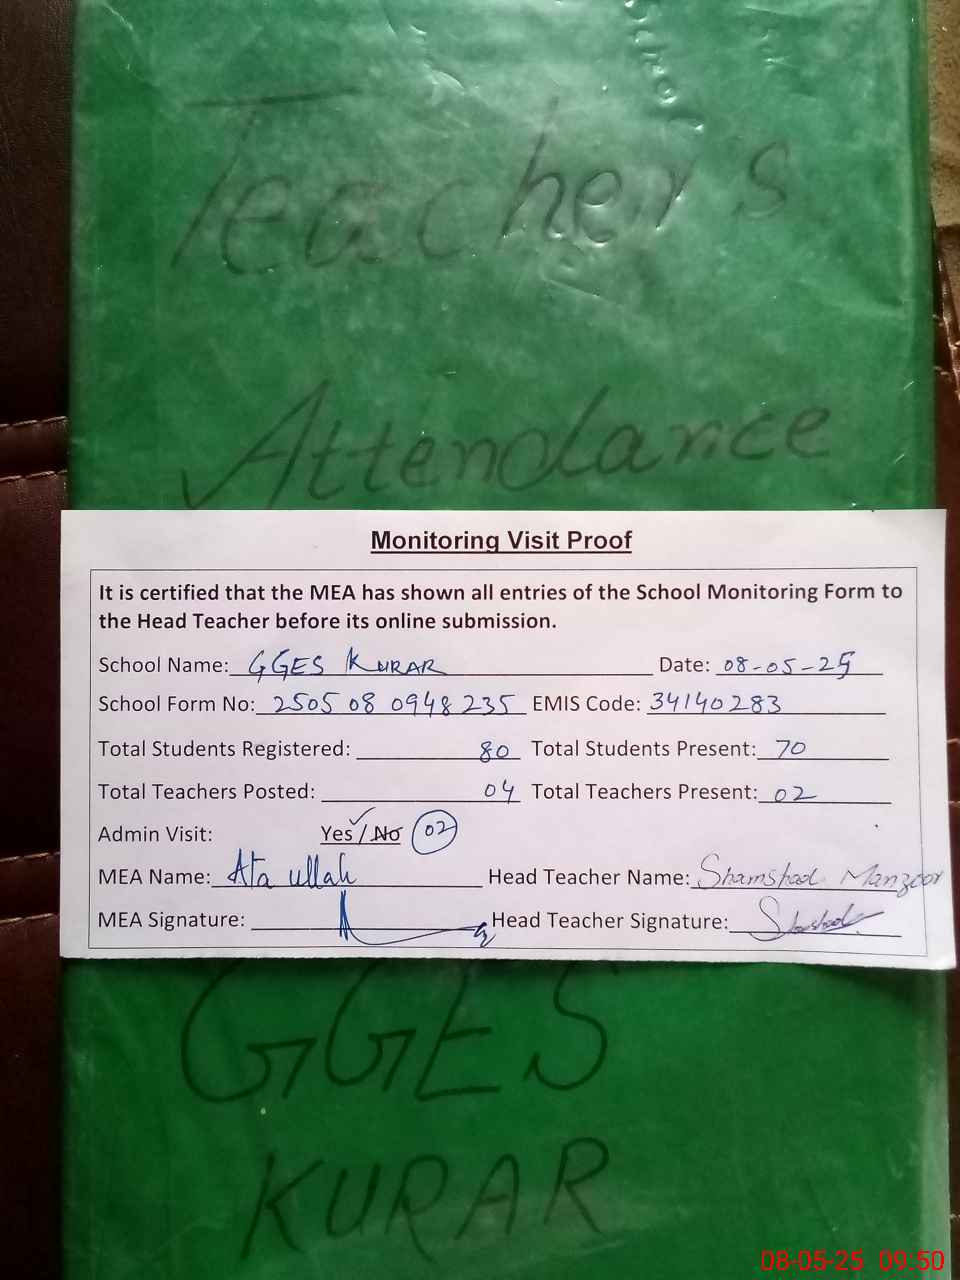 Teachers
Attendance
Monitoring Visit Proof
It is certified that the MEA has shown all entries of the School Monitoring Form to
the Head Teacher before its online submission.
School Name: GGES KURAR Date: 08-05-25
School Form No: 2505 08 0948 235 EMIS Code: 34140283
Total Students Registered: 80 Total Students Present: 70
Total Teachers Posted: 04 Total Teachers Present: 02
Admin Visit: Yes / No 02
MEA Name: Ata ullah Head Teacher Name: Shamshad Manzoor
MEA Signature: Head Teacher Signature:
GGES
KURAR
08-05-25 09:50